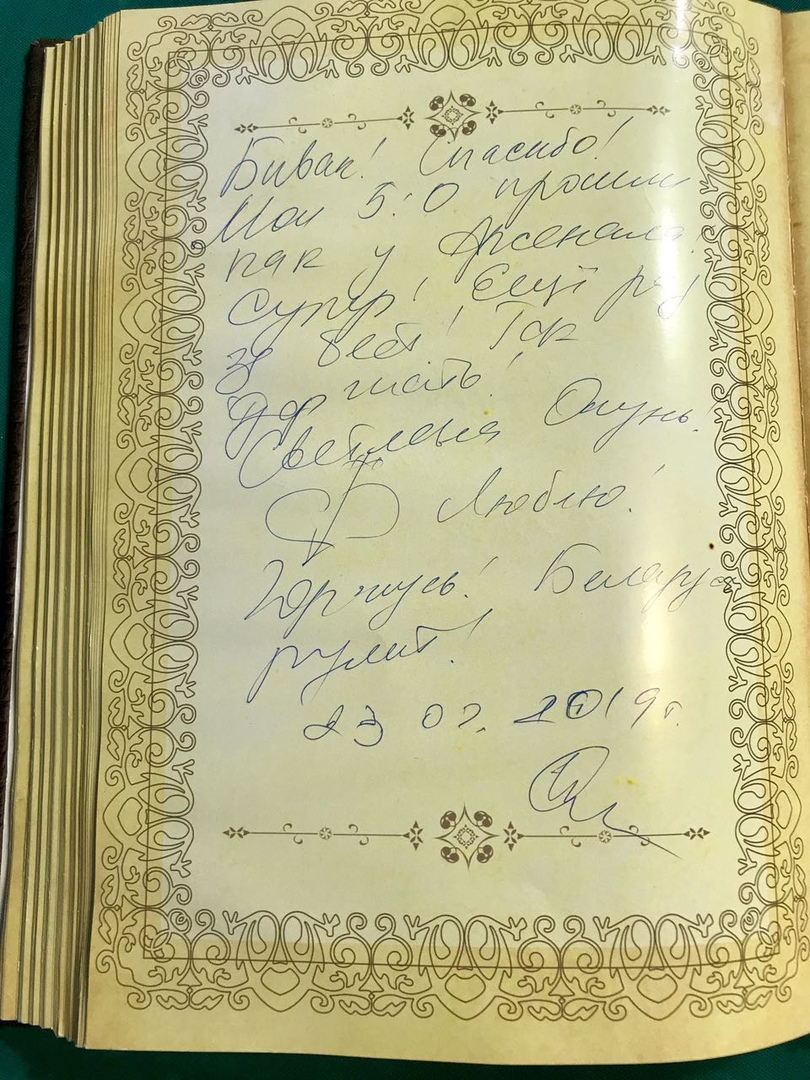 Бивак! Спасибо!
Мои 5:0 прошли
как у Арсенала!
Супер! Ещё раз
за Вест! Так
держать!
Светлана Окунь!
Люблю!
Горжусь! Беларусь
рулит!
23 07. 2019 г.